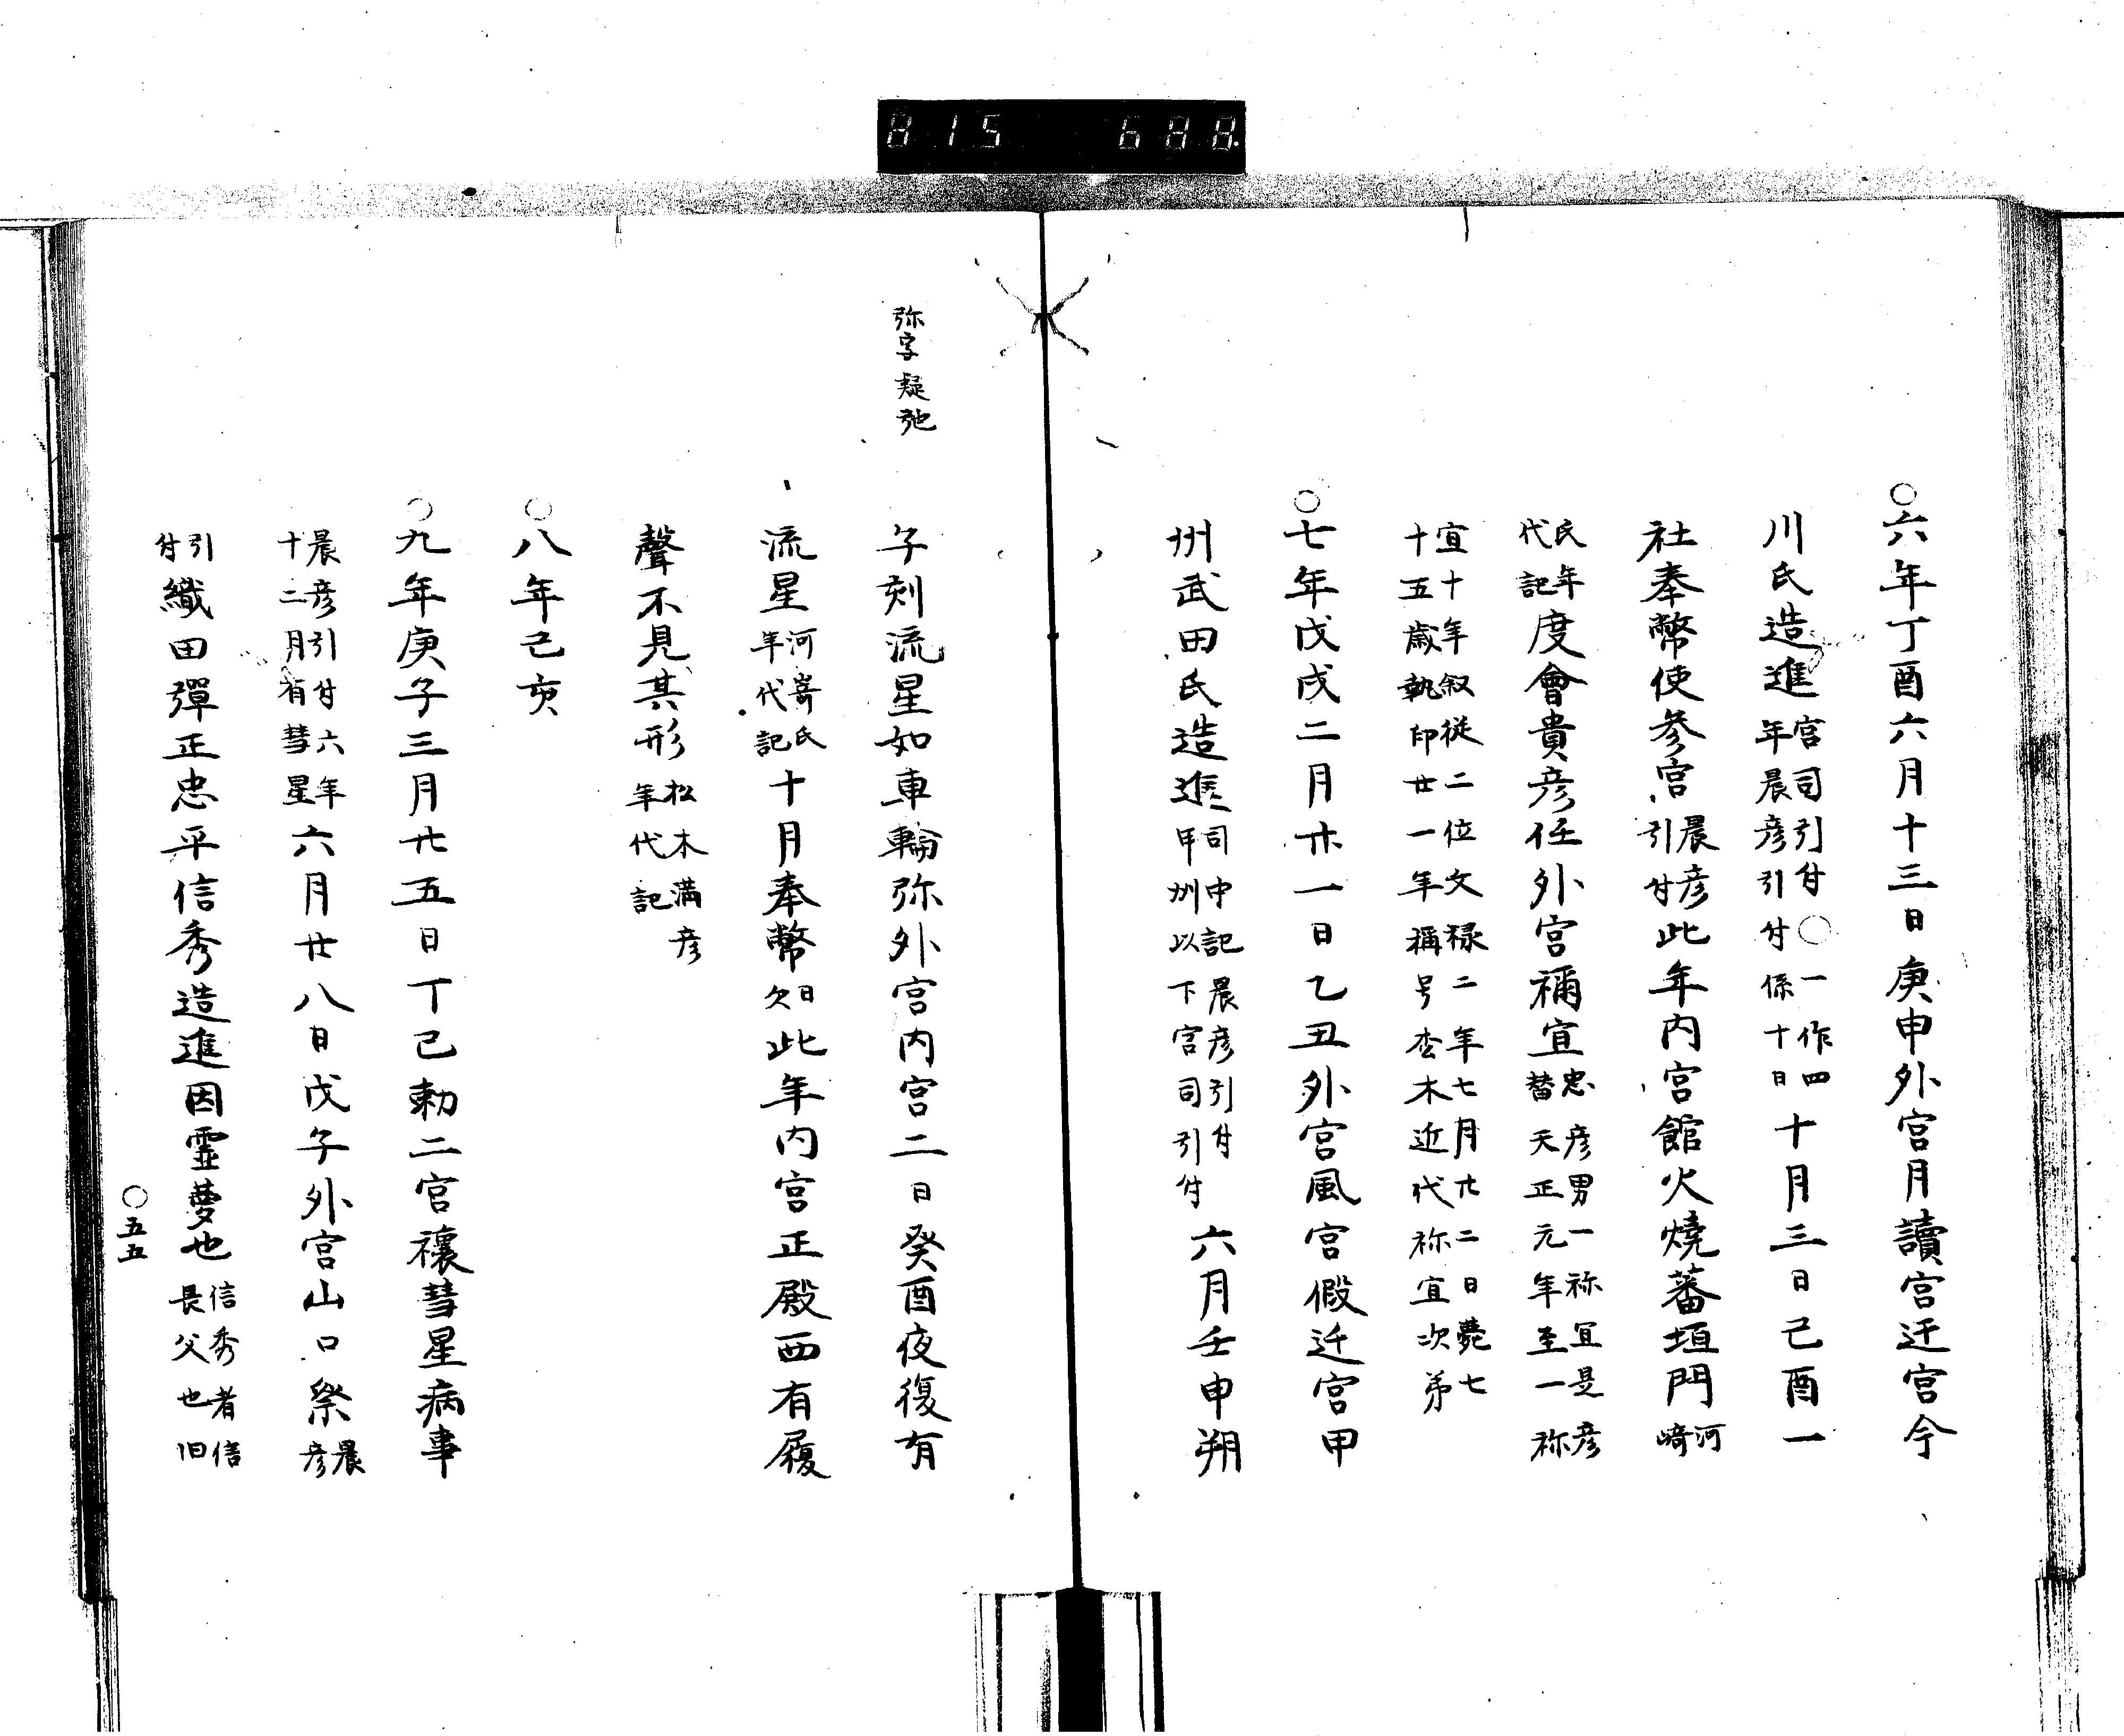 815 688.
○六年丁酉六月十三日庚申外宮月讀宮迁宮今
川氏造進宮司引付○一作四年晨彦引付係十日十月三日己酉一
社奉幣使参宮晨彦引付此年内宮館火燒蕃垣門河崎
氏年代記度會貴彦任外宮禰宜忠彦男一祢宜是彦替天正元年至一祢
宜十年叙従二位文禄二年七月廿二日薨七十五歳執印廿一年稱号杏木近代祢宜次苐
○七年戊戌二月廿一日乙丑外宮風宮假迁宮甲
州武田氏造進司中記晨彦引付甲州以下宮司引付六月壬申朔
弥字疑弛
子刻流星如車輪弥外宮内宮二日癸酉夜復有
流星河嵜氏年代記十月奉幣日欠此年内宮正殿西有履
聲不見其形松木満彦年代記
○八年己亥
○九年庚子三月廿五日丁巳勅二宮禳彗星病事
晨彦引付六年十二月有彗星六月廿八日戊子外宮山口祭晨彦
引付織田彈正忠平信秀造進因霊夢也信秀者信長父也旧
○五五